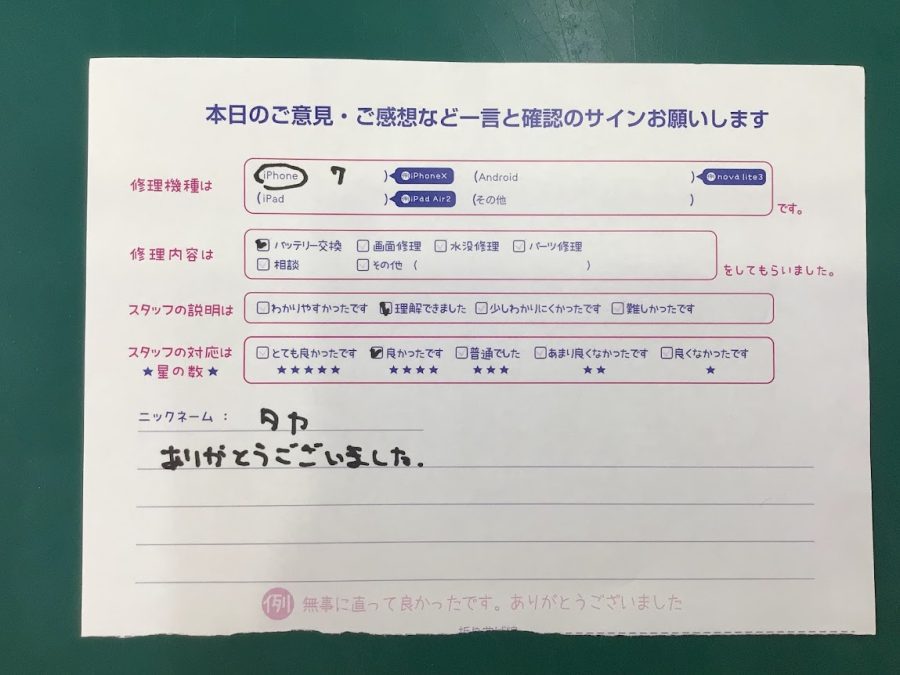 本日のご意見・ご感想など一言と確認のサインお願いします
修理機種は
iPhone 7 ) 例 iPhoneX (Android ) 例 nova lite3
(iPad ) 例 iPad Air2 (その他 )
です。
修理内容は
バッテリー交換 画面修理 水没修理 パーツ修理
相談 その他 ( )
をしてもらいました。
スタッフの説明は
わかりやすかったです 理解できました 少しわかりにくかったです 難しかったです
スタッフの対応は
★星の数★
とても良かったです 良かったです 普通でした あまり良くなかったです 良くなかったです
★★★★★ ★★★★ ★★★ ★★ ★
ニックネーム: タカ
ありがとうございました.
例 無事に直って良かったです。ありがとうございました